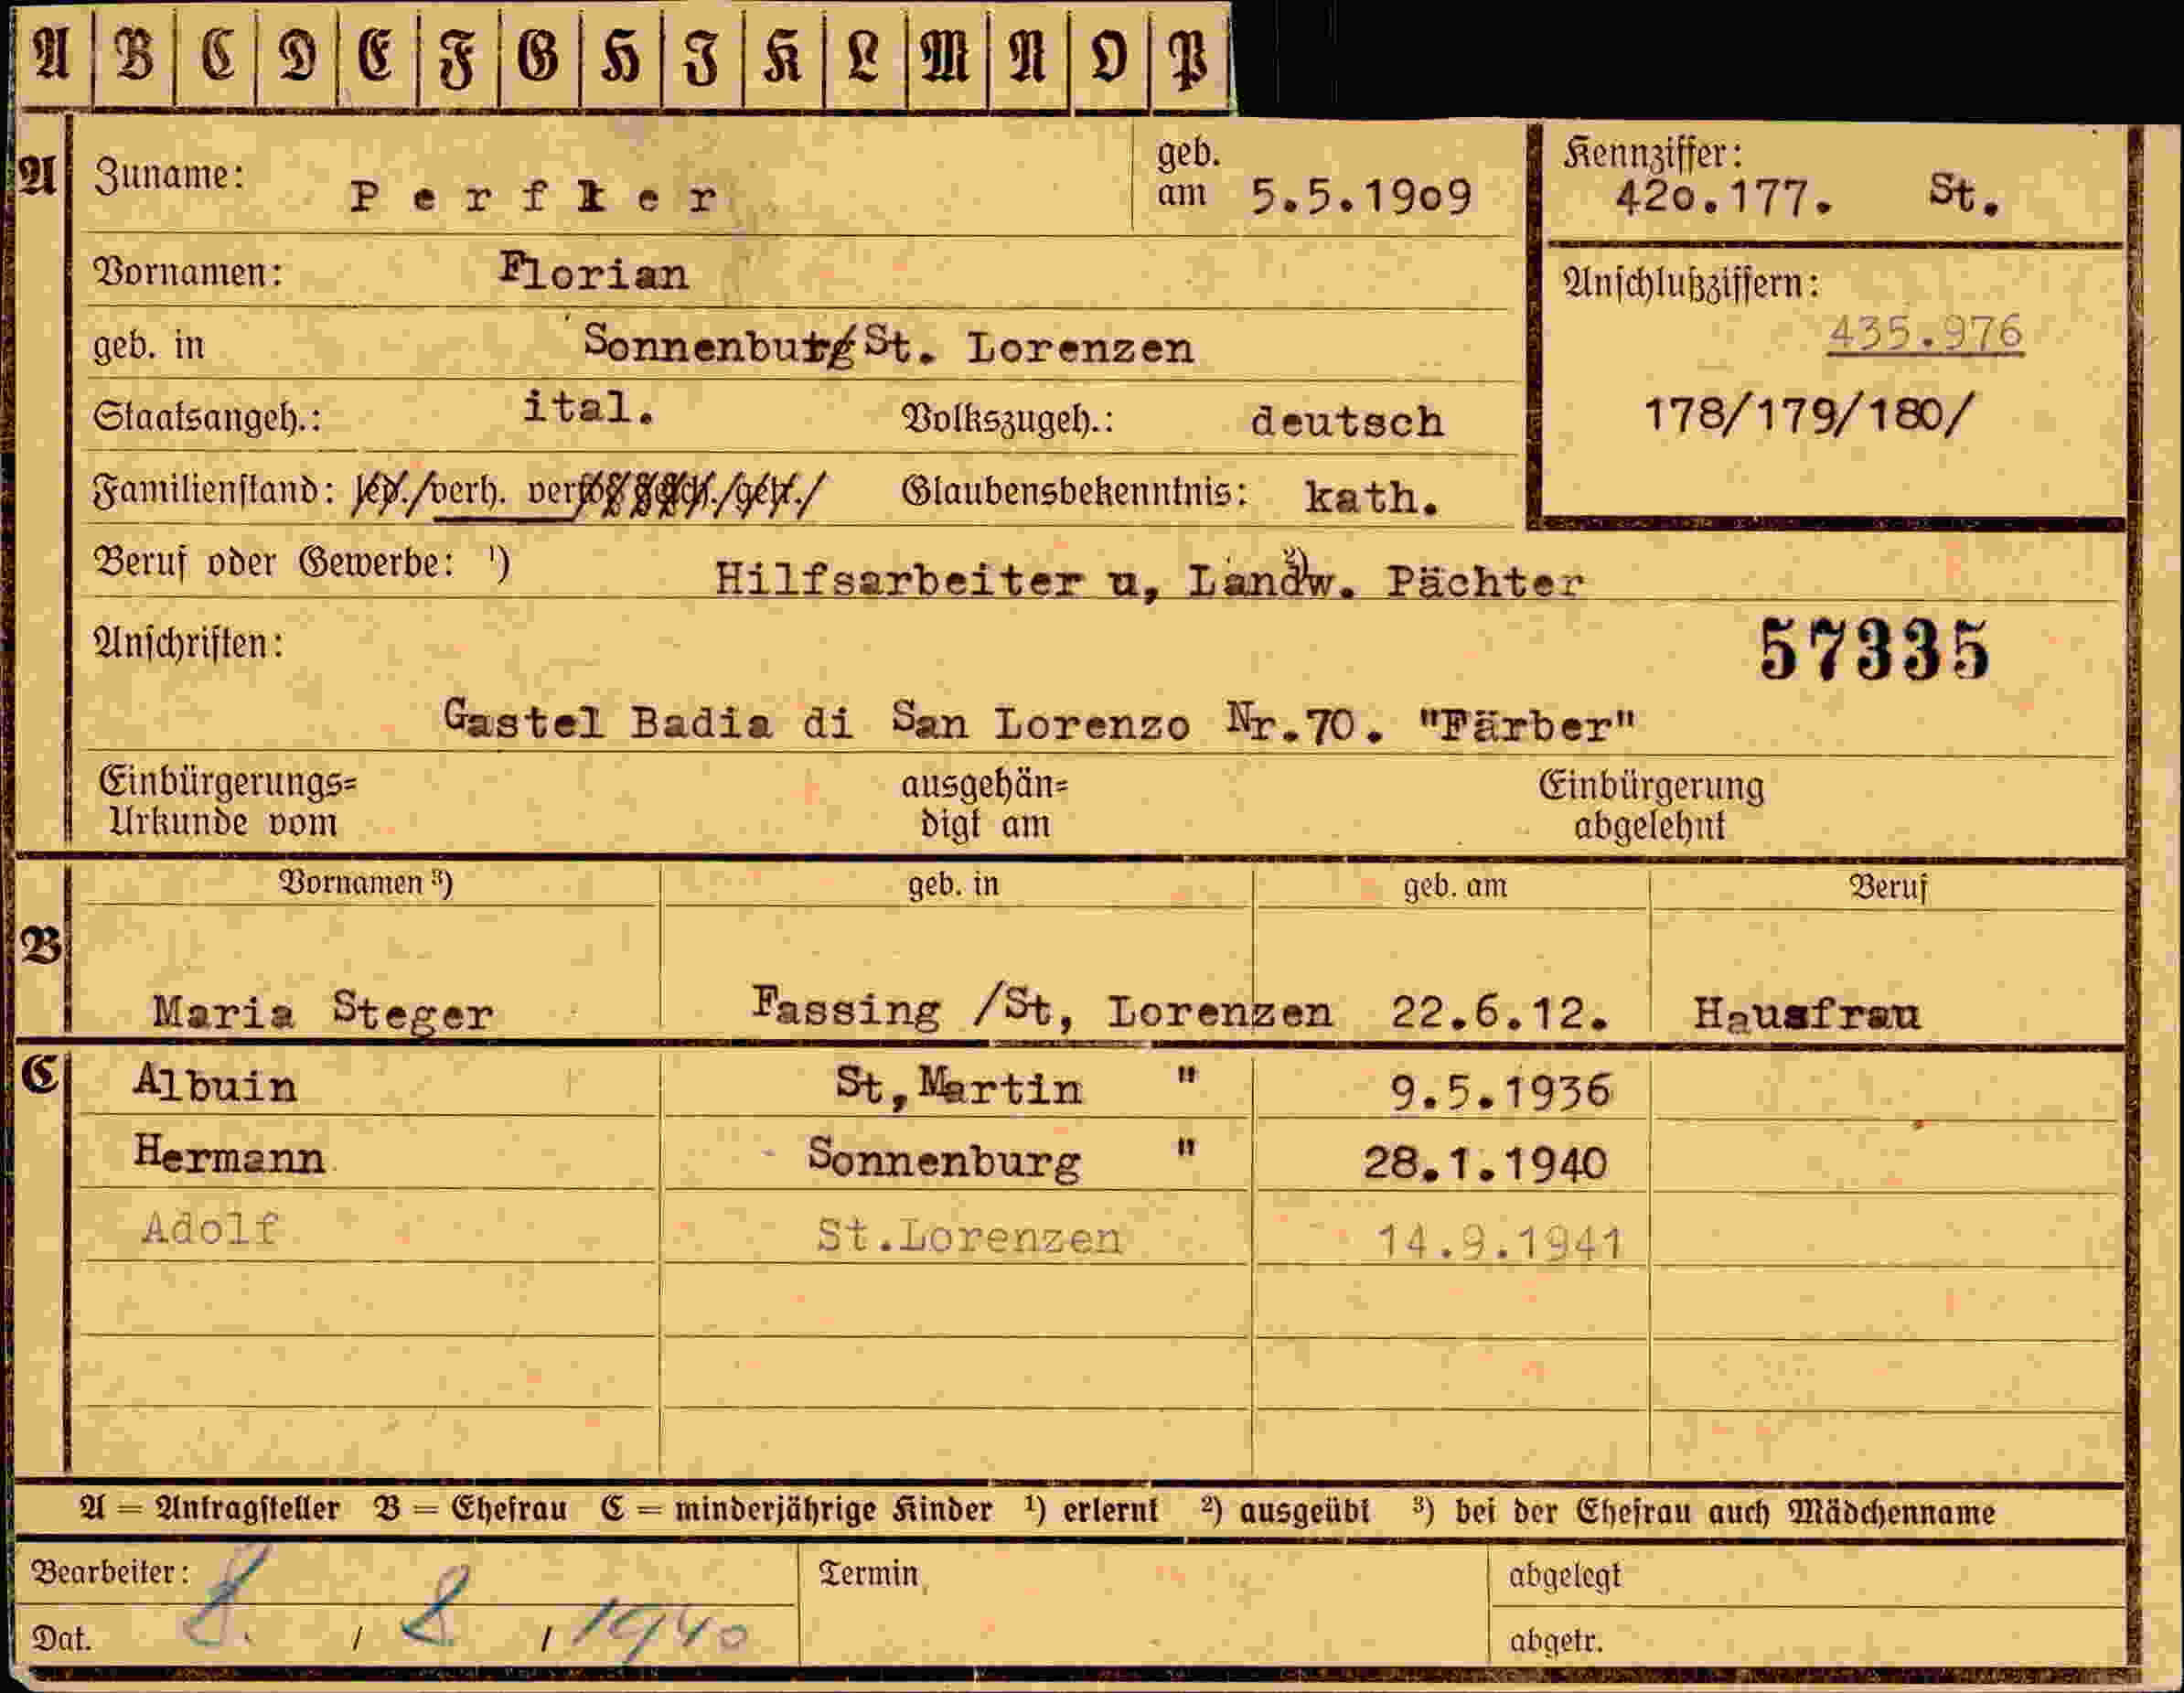 A B C D E F G H I K L M N O P
A Zuname: Perfler geb. am 5.5.19o9 Kennziffer: 42o.177. St.
Vornamen: Florian
Anschlußziffern: 435.976
geb. in Sonnenburg/St. Lorenzen
Staatsangeh.: ital. Volkszugeh.: deutsch 178/179/180/
Familienstand: led./verh. verw./gesch./getr./ Glaubensbekenntnis: kath.
Beruf oder Gewerbe: ¹) Hilfsarbeiter u, Landw. ²) Pächter
Anschriften: 57335
Gastel Badia di San Lorenzo Nr.70. "Färber"
Einbürgerungs= ausgehän= Einbürgerung
Urkunde vom digt am abgelehnt
Vornamen ³) geb. in geb. am Beruf
B
Maria Steger Fassing /St, Lorenzen 22.6.12. Hausfrau
C Albuin St,Martin " 9.5.1936
Hermann Sonnenburg " 28.1.1940
Adolf St.Lorenzen 14.9.1941
A = Antragsteller B = Ehefrau C = minderjährige Kinder ¹) erlernt ²) ausgeübt ³) bei der Ehefrau auch Mädchenname
Bearbeiter: Termin abgelegt
Dat. 8. / 8 / 1940 abgetr.